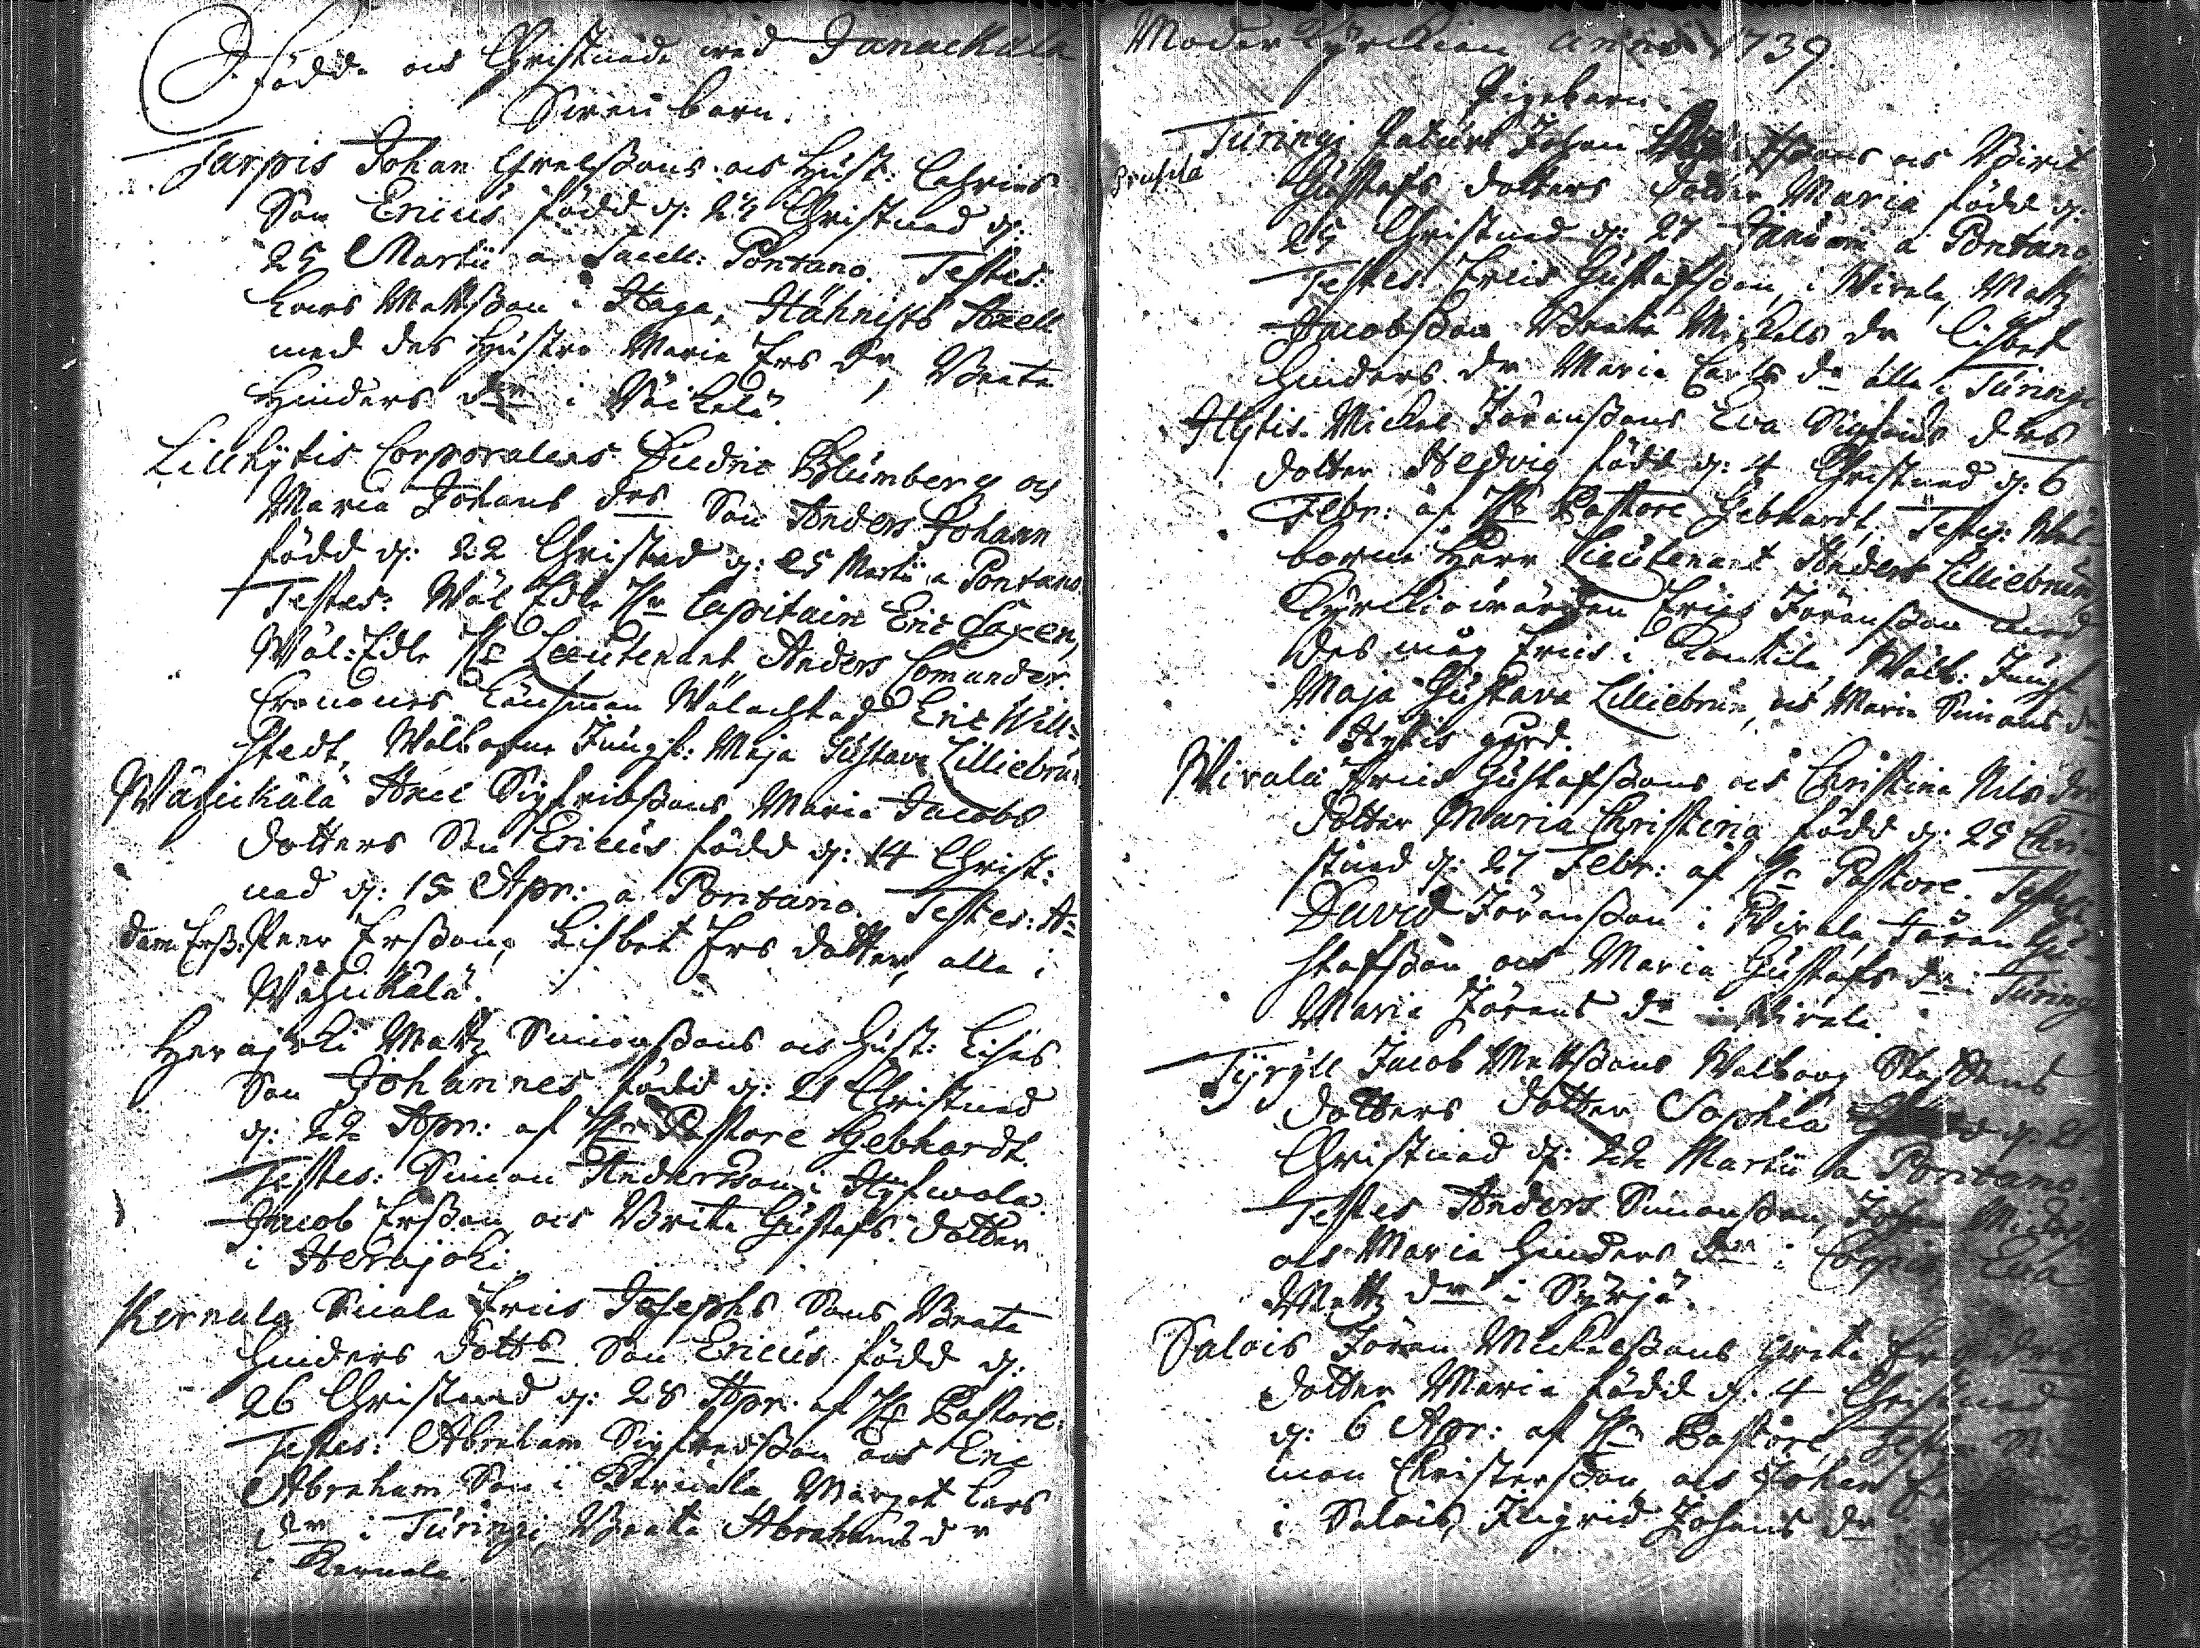 Födde och Christnade wid Janackala
Swen barn.
Turpis Johan Grelssons och Hust: Cahrins
Son Ericus född d: 24 Christnad d:
25 Martii a Sacell: Pontano. Testes:
Lars Mattsson i Haga, Hähnists Axell
med des Hustru Maria Ers dr, Beata
Hinders dr i
Lillhytis Corporalens Hudric Blumberg och
Maria Johans drs Son Anders Johann
född d: 22 Christnad d: 25 Martii a Pontano
Testes: Wäl Edle Hr Capitain Eric Saxen,
Wäl: Edle Hr Lieutenant Anders Comunder.
Cronones Länsman Wälachtad Eric Will=
stedt, Wälborne Jungf: Maja Gustava Lilliebrun
Wähikälä Axel Sigfridssons Maria Jacobs
dotters Son Ericus född d: 14 Christ:
nad d: 15 Apr: a Pontano. Testes: A=
dam Erss: Peer Ersson, Lisbet Ers dotter, alla i
Wähikälä.
Herajoki Matz Simonssons och Hust: Lisas
Son Johannes född d: 21 Christnad
d: 22 Apr: af Hr Pastore Gebhardt.
Testes: Simon Andersson i Hyfwola
Jacob Ersson och Brita Gustafs dotter
i Herajoki.
Kernala Siuala Erics Josephs Sons Beata
Hinders dotts Son Ericus född d:
26 Christnad d: 28 Apr. af Hr Pastore:
Testes: Abraham Sigfredsson och Eric
Abraham Son i Kernala Marget Lars
dr i Türingi, Beata Abrahams dr
i Kernala.
Moder Kyrckian anno 1739.
Pigebarn.
Türingi Johan och Birit
Gustafs dotters dotter Maria född d:
25 Christnad d: 27 Januarii a Pontano
Testes Erics Gustafsson, i Wirala, Matz
Jacobsson Beata Mickels dr Lisbet
Hinders dr Maria Carls dr alla i Türingi
Hytis. Mickel Jöranssons Eva Sigfrids drs
dotter Hedvig född d: 4 Christnad d: 6
Febr: af Hr Pastore Gebhardt. Testes: Wäl=
borne Herr Lieutenant Anders Lilliebrun
Kyrckiowärden Erics Jöransson med
des måg Erics i Rantila, Wälb: Jungf
Maja Gustava Lilliebrun, och Maria Simons dr
i Hytis gård.
Wirala Erics Gustafssons och Christina Nils drs
dotter Maria Christina född d: 25 Chri=
stnad d: 27 Febr: af Hr Pastore. Testes
David Jöransson i Wirala, Jöran Gu=
stafsson och Maria Gustafs dr i Türingi
Maria Jörans dr i Wirala.
Tÿrÿle Jacob Mattssons Walborg Staffans
dotters dotter Sophia d: 21
Christnad d: 22 Martii a Pontano.
Testes Anders Simonsson, Johan
och Maria Hinders dr i Eva
Matts dr i Syrjä.
Salois Jöran Mickelssons Greta
dotter Maria född d: 4 Christnad
d: 6 Apr: af Hr Pastore, Testes Si=
mon Christersson, och Johan
i Salois, Ingrid Johans dr